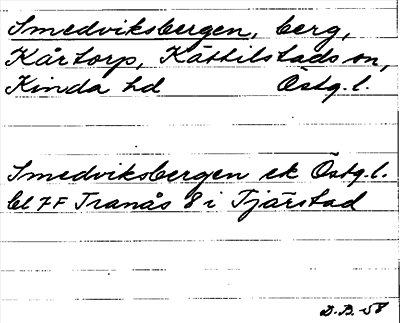 Smedviksbergen, berg,
Kårtorp, Kättilstads sn,
Kinda hd Östg. l.
Smedviksbergen ek Östg. l.
bl 7F Tranås 8 i Tjärstad
D.B. -58